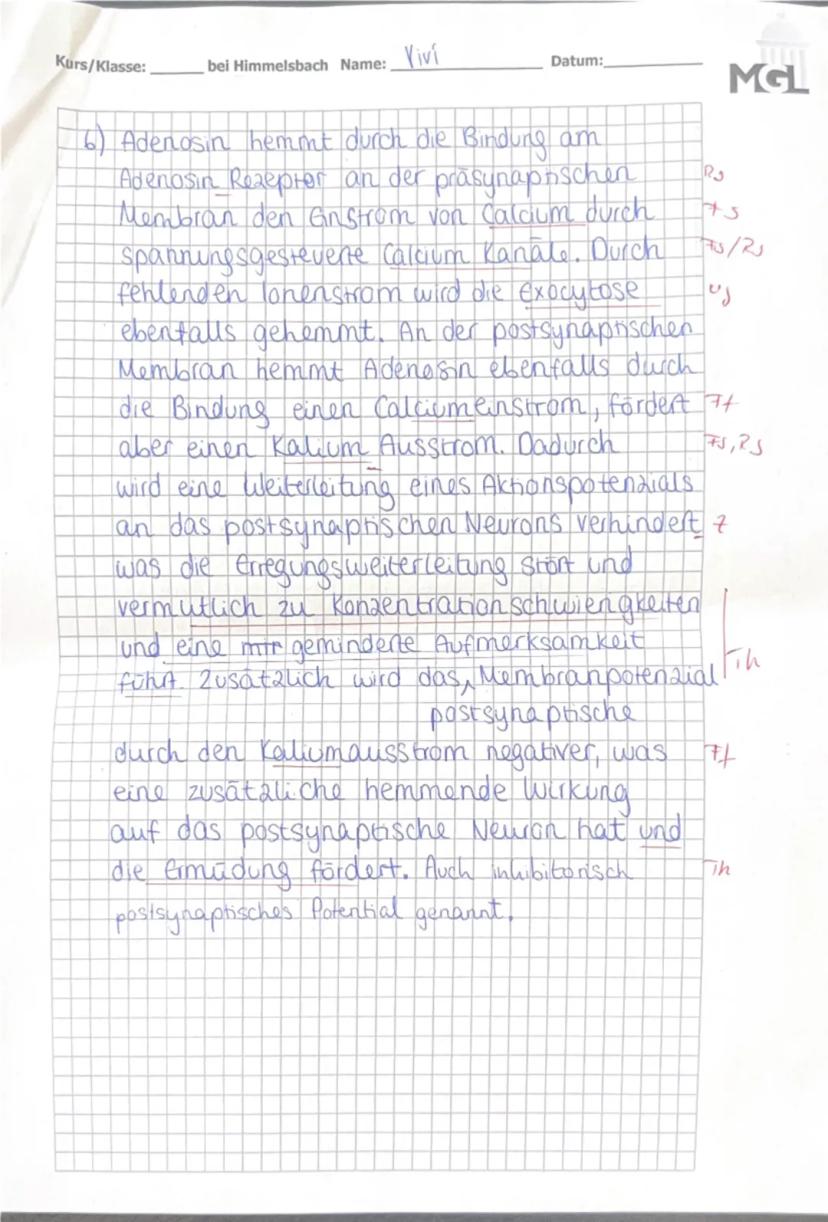 Kurs/Klasse: ______ bei Himmelsbach Name: Vivi Datum:
MGL
6) Adenosin hemmt durch die Bindung am
Adenosin Rezeptor an der präsynaptischen Rs
Membran den Einstrom von Calcium durch Fs
spannungsgesteuerte Calcium Kanäle. Durch Fs/Rs
fehlenden Ionenstrom wird die exocytose
ebenfalls gehemmt. An der postsynaptischen
Membran hemmt Adenosin ebenfalls durch
die Bindung einen Calciumeinstrom, fördert Ff
aber einen Kalium Ausstrom. Dadurch Fs, Rs
wird eine Weiterleitung eines Aktionspotenzials
an das postsynaptischen Neurons verhindert Z
was die Erregungsweiterleitung stört und
vermutlich zu Konzentrationschwierigkeiten
und eine geminderte Aufmerksamkeit
führt. Zusätzlich wird das Membranpotenzial Th
postsynaptische
durch den Kaliumausstrom negativer, was Ff
eine zusätzliche hemmende Wirkung
auf das postsynaptische Neuron hat und
die Ermüdung fördert. Auch inhibitorisch Th
postsynaptisches Potential genannt.